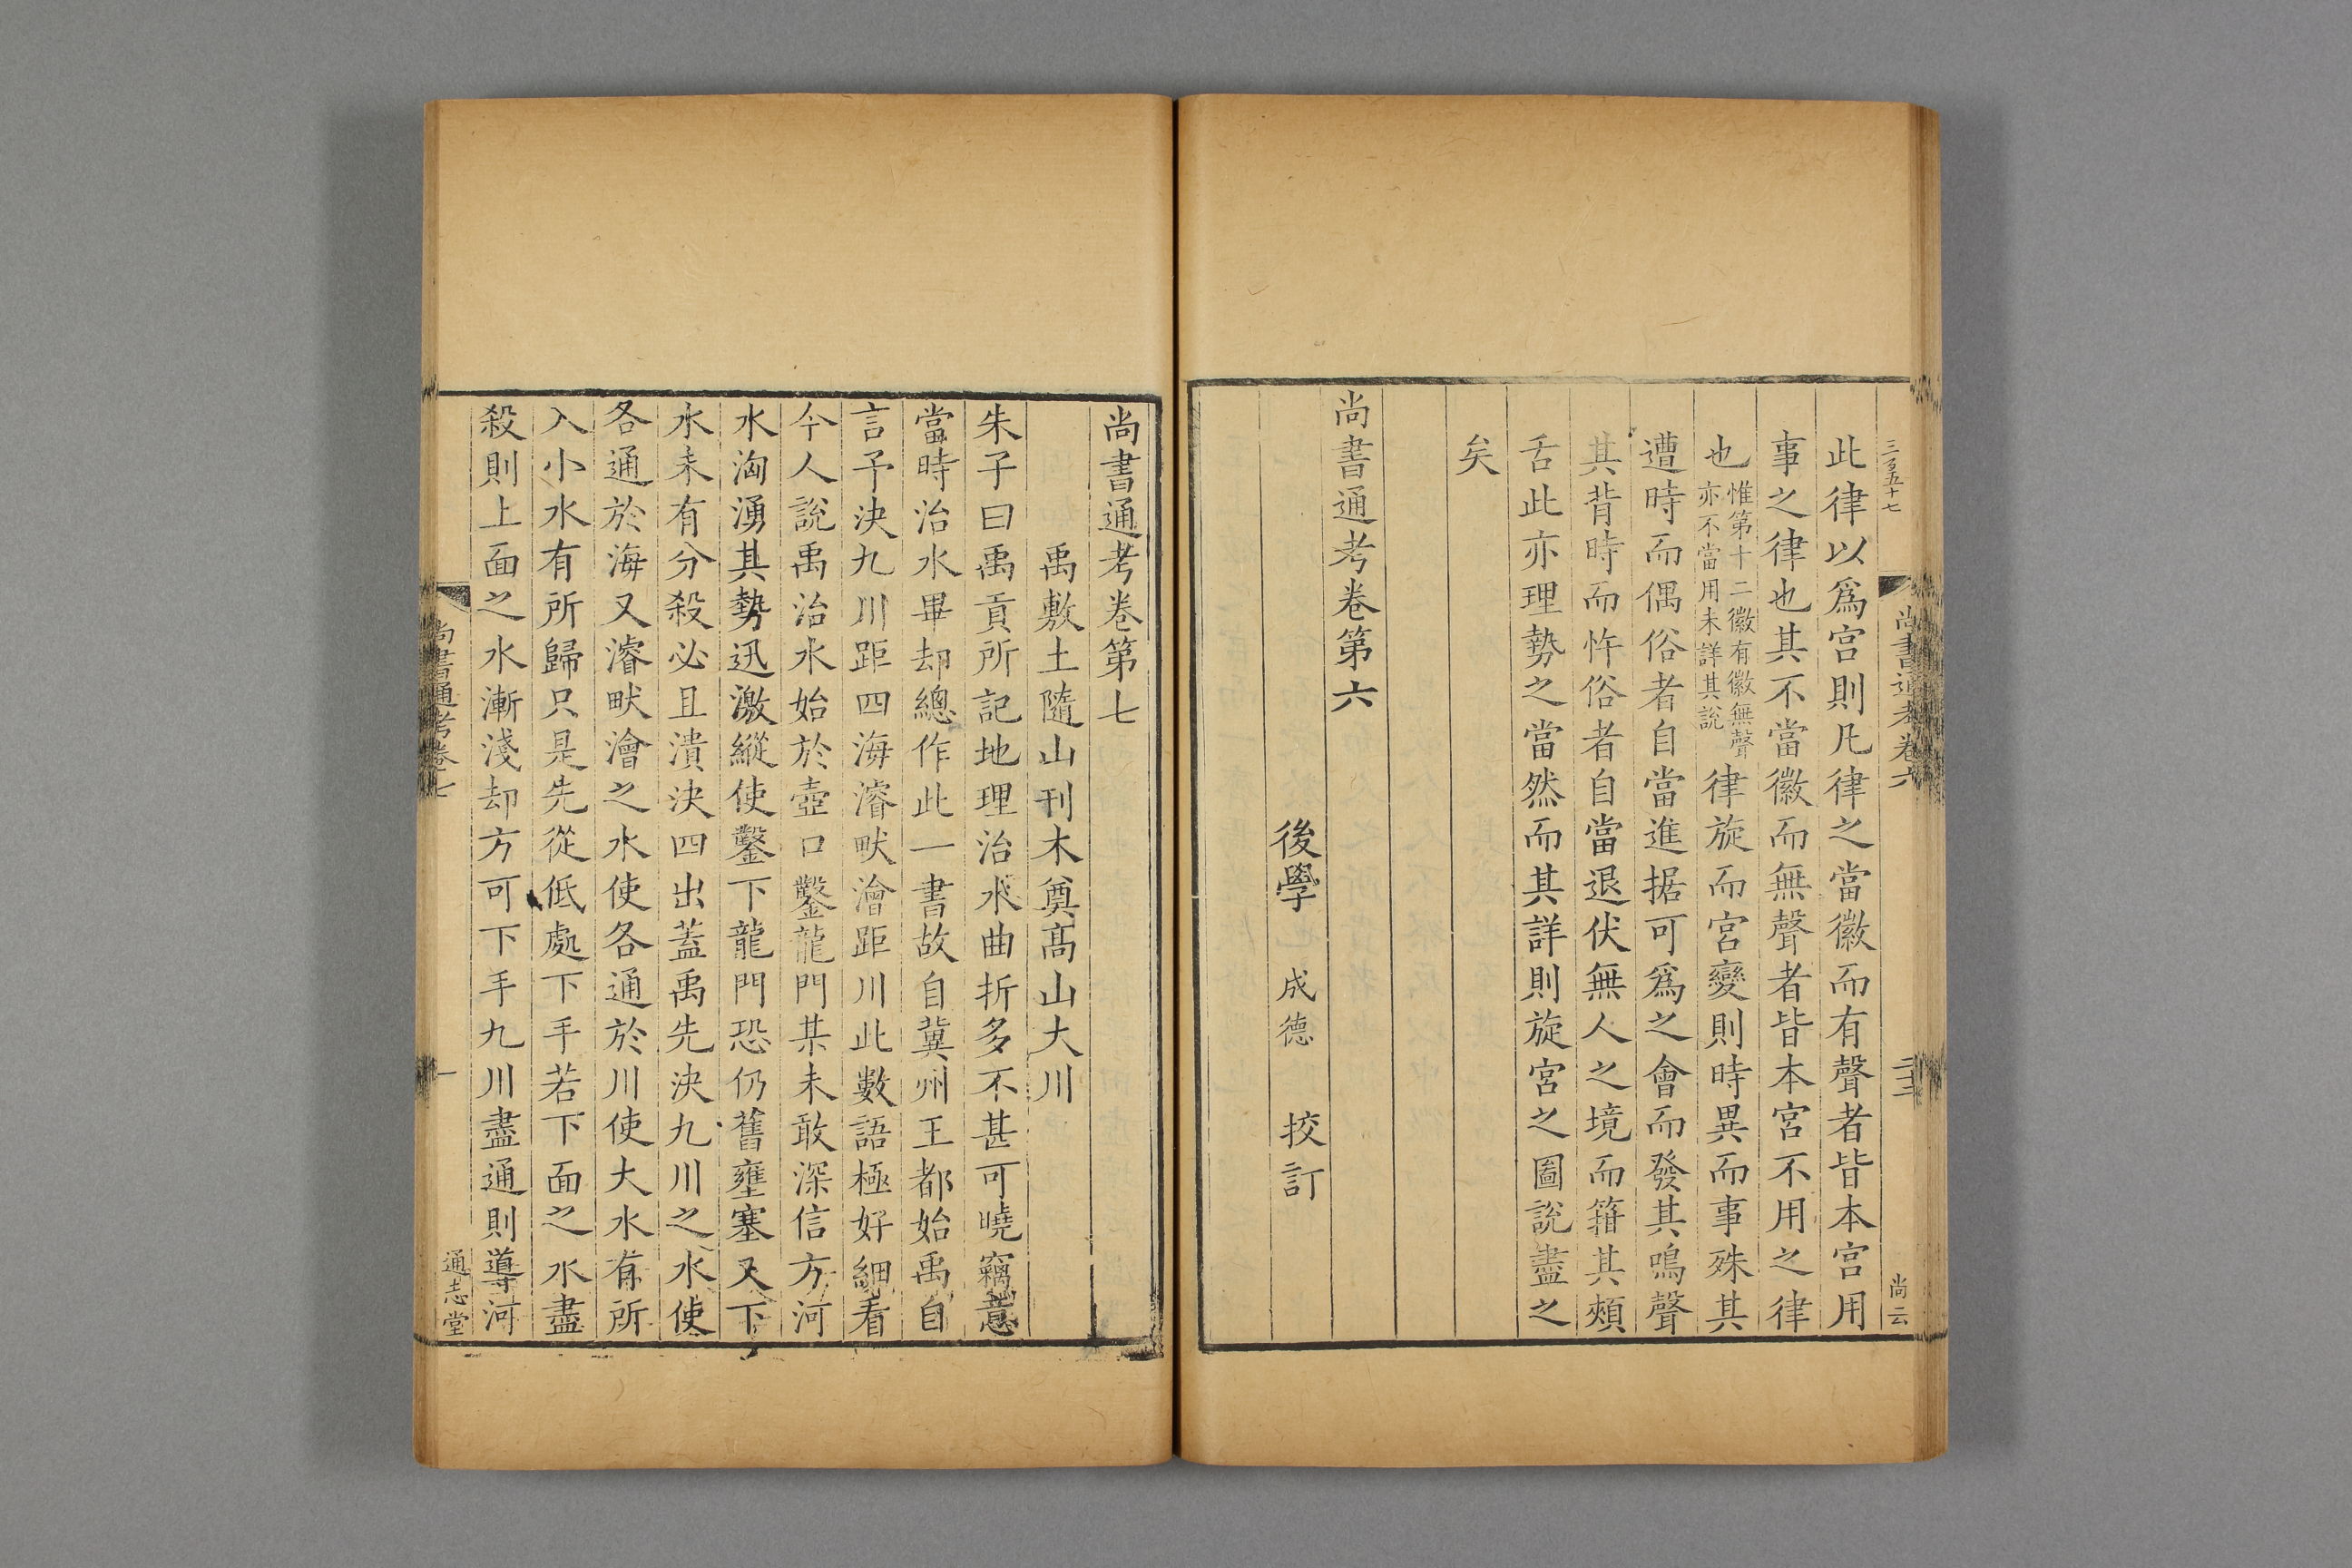 三百五十七
尚書通考卷六
尚云
此律以爲宮則凡律之當徽而有聲者皆本宮用
事之律也其不當徽而無聲者皆本宮不用之律
也惟第十二徽有徽無聲亦不當用未詳其說律旋而宮變則時異而事殊其
遭時而偶俗者自當進据可爲之會而發其鳴聲
其背時而忤俗者自當退伏無人之境而箝其頰
舌此亦理勢之當然而其詳則旋宮之圖說盡之
矣
尚書通考卷第六
後學 成德 挍訂
尚書通考卷第七
禹敷土隨山刊木奠髙山大川
朱子曰禹貢所記地理治水曲折多不甚可曉竊意
當時治水畢却總作此一書故自冀州王都始禹自
言予決九川距四海濬畎澮距川此數語極好細看
今人說禹治水始於壺口鑿龍門某未敢深信方河
水洶湧其勢迅激縱使鑿下龍門恐仍舊壅塞又下
水未有分殺必且潰決四出蓋禹先決九川之水使
各通於海又濬畎澮之水使各通於川使大水有所
入小水有所歸只是先從低處下手若下面之水盡
殺則上面之水漸淺却方可下手九川盡通則導河
尚書通考卷七
一
通志堂